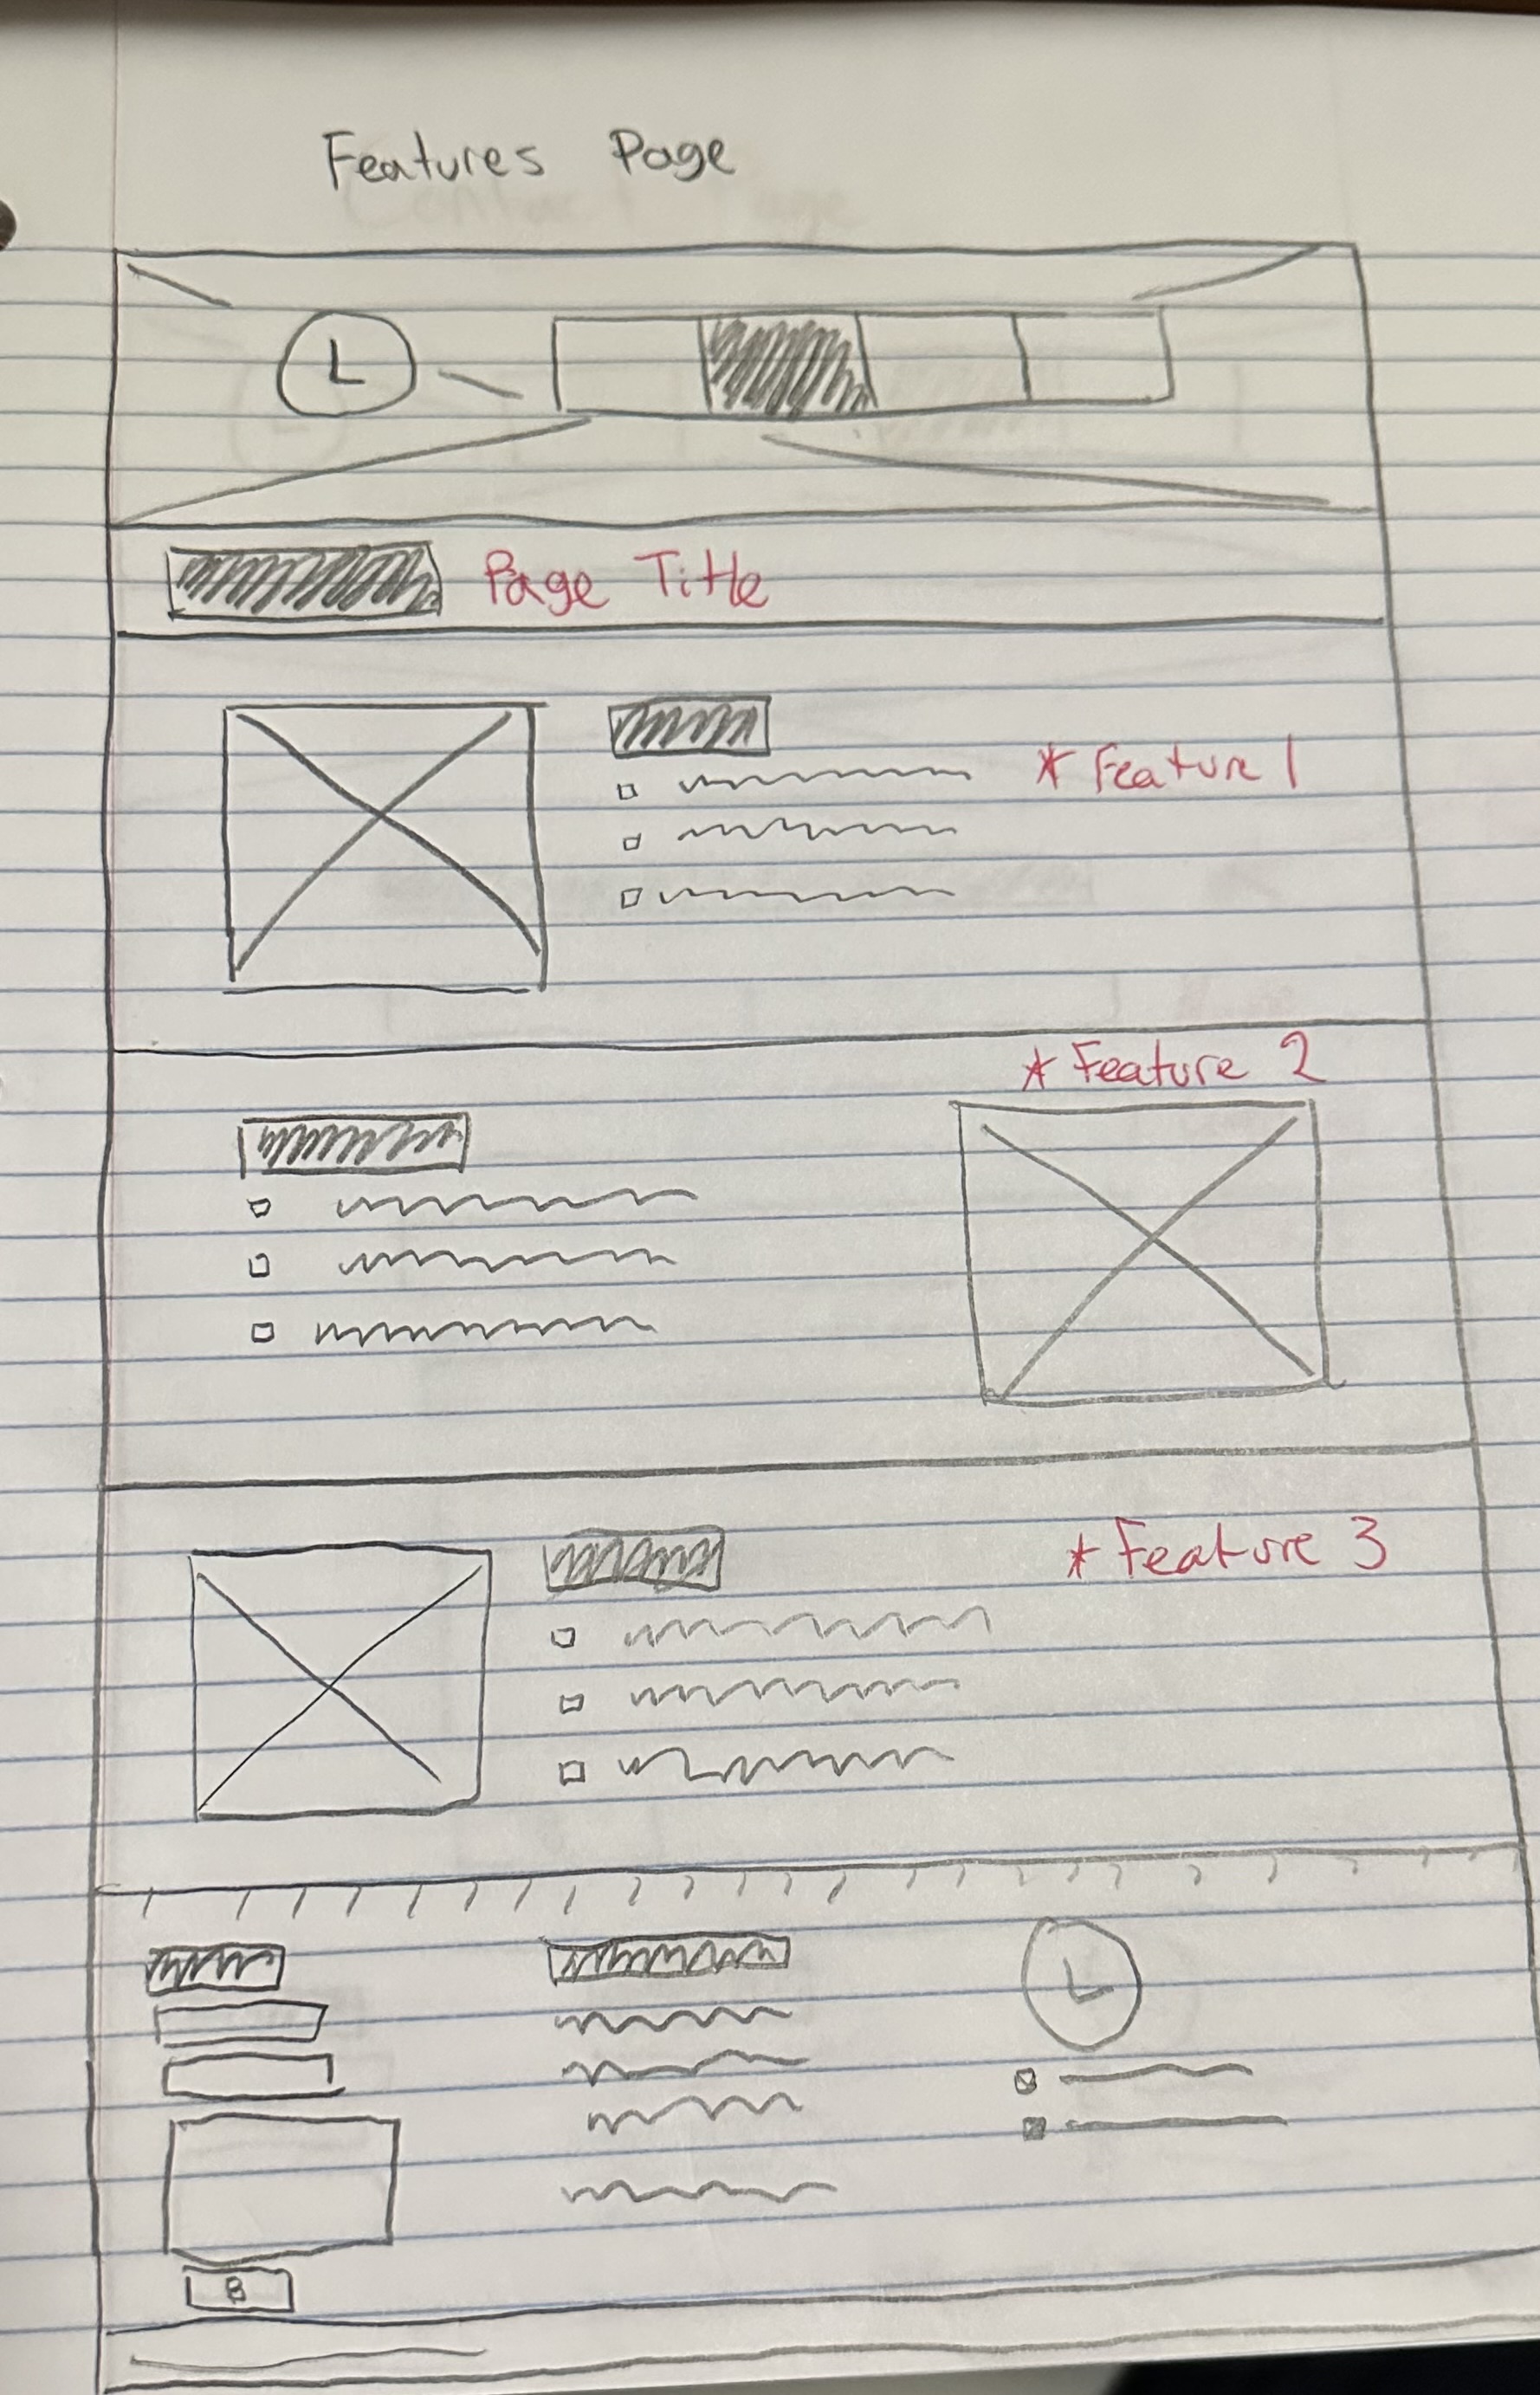 Features Page
L
Page Title
* Feature 1
* Feature 2
* Feature 3
L
B